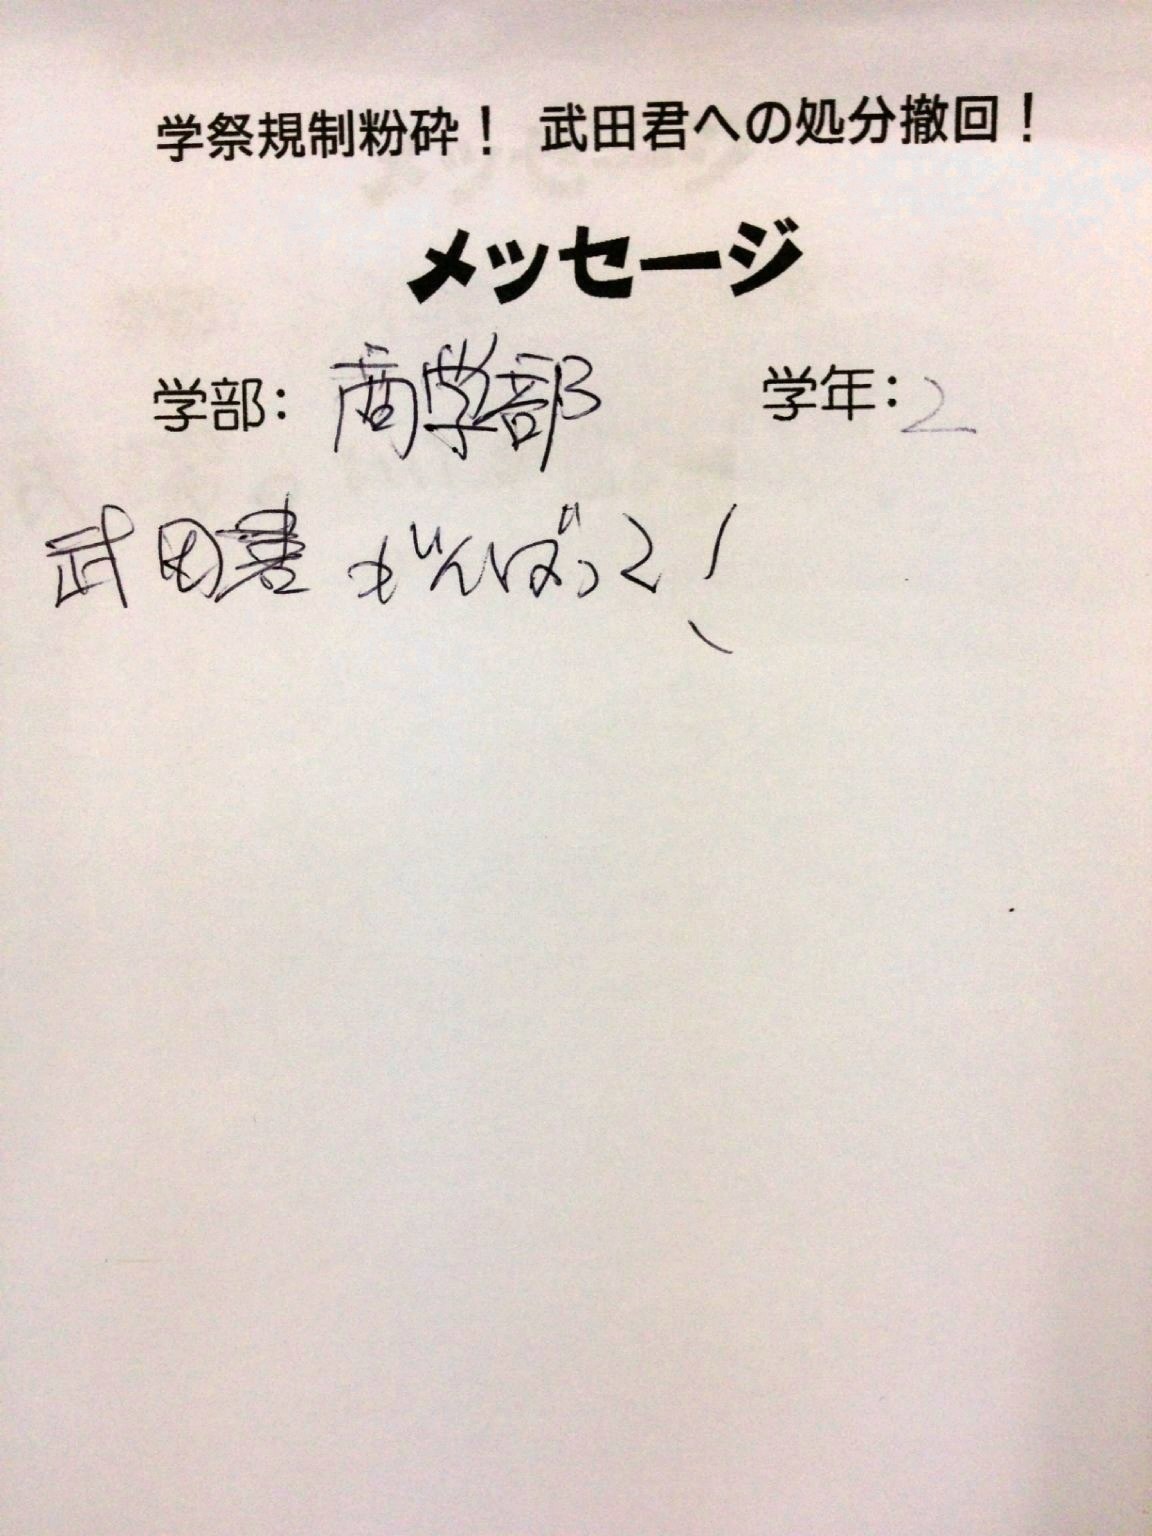 学祭規制粉砕！ 武田君への処分撤回！
メッセージ
学部： 商学部 学年：2
武田君 がんばって！